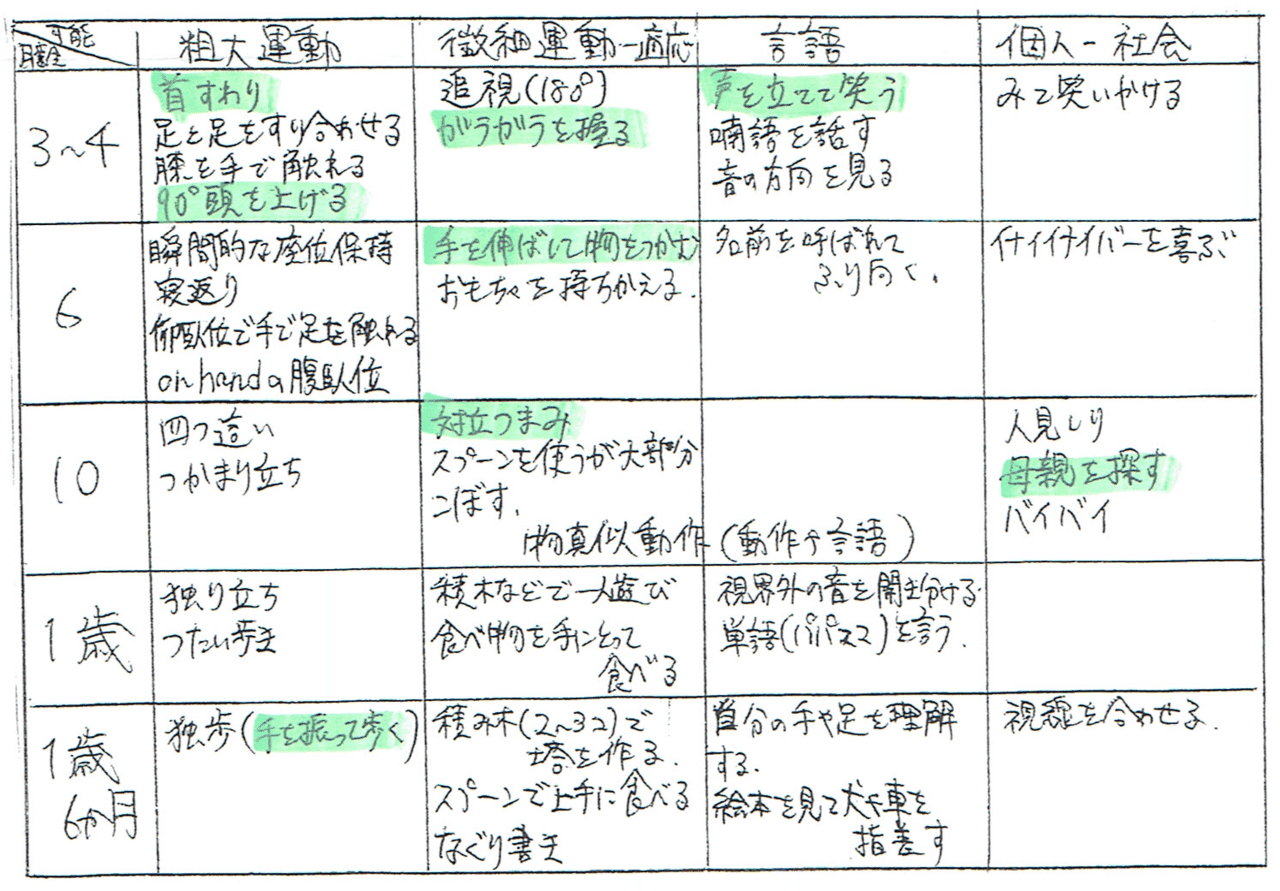 可能
月齢
粗大運動
微細運動－適応
言語
個人－社会
3〜4
首すわり
足と足をすり合わせる
膝を手で触れる
90°頭を上げる
追視(180°)
がらがらを握る
声を立てて笑う
喃語を話す
音の方向を見る
みて笑いかける
6
瞬間的な座位保持
寝返り
仰臥位で手で足を触れる
on handの腹臥位
手を伸ばして物をつかむ
おもちゃを持ちかえる.
名前を呼ばれて
ふり向く.
イナイイナイバーを喜ぶ
10
四つ這い
つかまり立ち
対立つまみ
スプーンを使うが大部分
こぼす.
物真似動作(動作や言語)
人見しり
母親を探す
バイバイ
1歳
独り立ち
つたい歩き
積木などで一人遊び
食べ物を手にとって
食べる
視界外の音を聞き分ける
単語(パパママ)を言う.
1歳
6か月
独歩(手を振って歩く)
積み木(2〜3コ)で
塔を作る.
スプーンで上手に食べる
なぐり書き
自分の手や足を理解
する.
絵本を見て犬や車を
指差す
視線を合わせる.